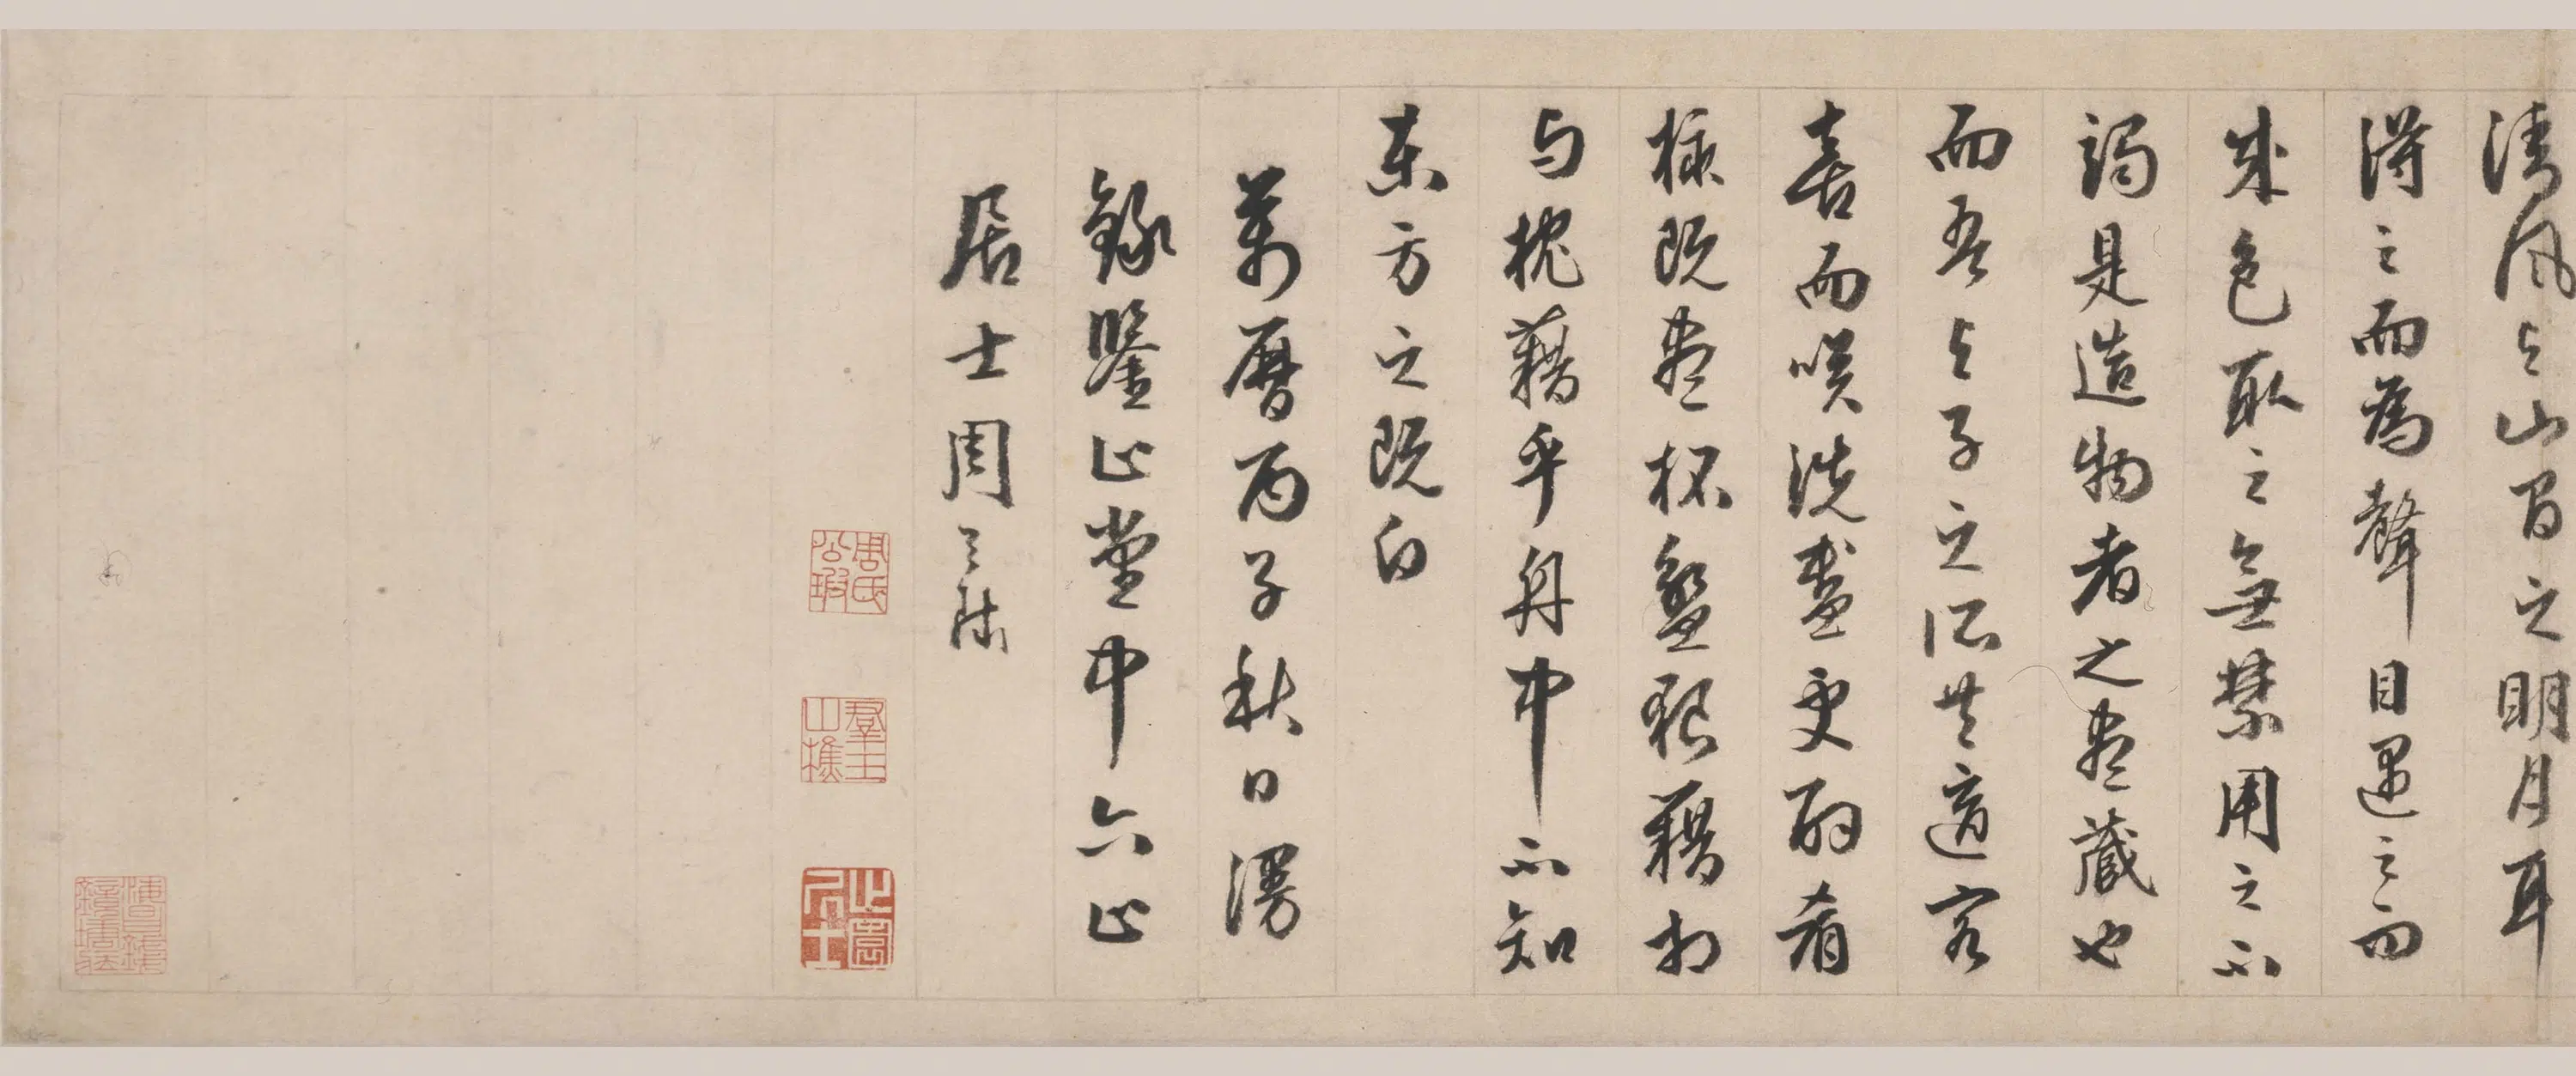 清風与山間之明月耳
得之而為聲目遇之而
成色取之無禁用之不
竭是造物者之盡藏也
而吾与子之所共適客
喜而咲洗盞更酌肴
核既盡杯盤狼藉相
与枕藉乎舟中不知
東方之既白
萬曆丙子秋日漫
錄鑒止堂中六止
居士周天球
周氏公瑕
羣玉山樵
止園居士